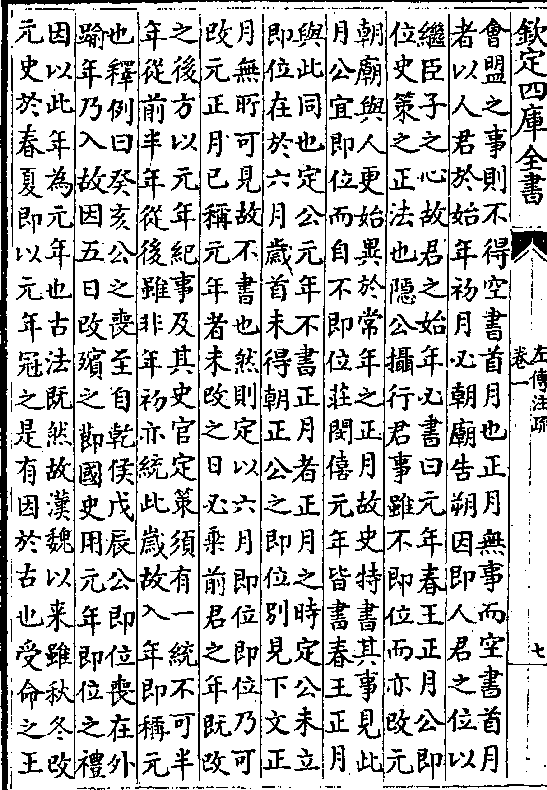 欽定四庫全書
左傳注疏
卷一
七
會盟之事則不得空書首月也正月無事而空書首月
者以人君於始年初月必朝廟告朔因即人君之位以
繼臣子之心故君之始年必書曰元年春王正月公即
位史策之正法也隱公攝行君事雖不即位而亦改元
朝廟與人更始異於常年之正月故史特書其事見此
月公宜即位而自不即位莊閔僖元年皆書春王正月
與此同也定公元年不書正月者正月之時定公未立
即位在於六月歲首未得朝正公之即位別見下文正
月無所可見故不書也然則定以六月即位即位乃可
改元正月已稱元年者未改之日必乘前君之年既改
之後方以元年紀事及其史官定策須有一統不可半
年從前半年從後雖非年初亦統此歲故入年即稱元
也釋例曰癸亥公之喪至自乾侯戊辰公即位喪在外
踰年乃入故因五日改殯之節國史用元年即位之禮
因以此年為元年也古法既然故漢魏以来雖秋冬改
元史於春夏即以元年冠之是有因於古也受命之王